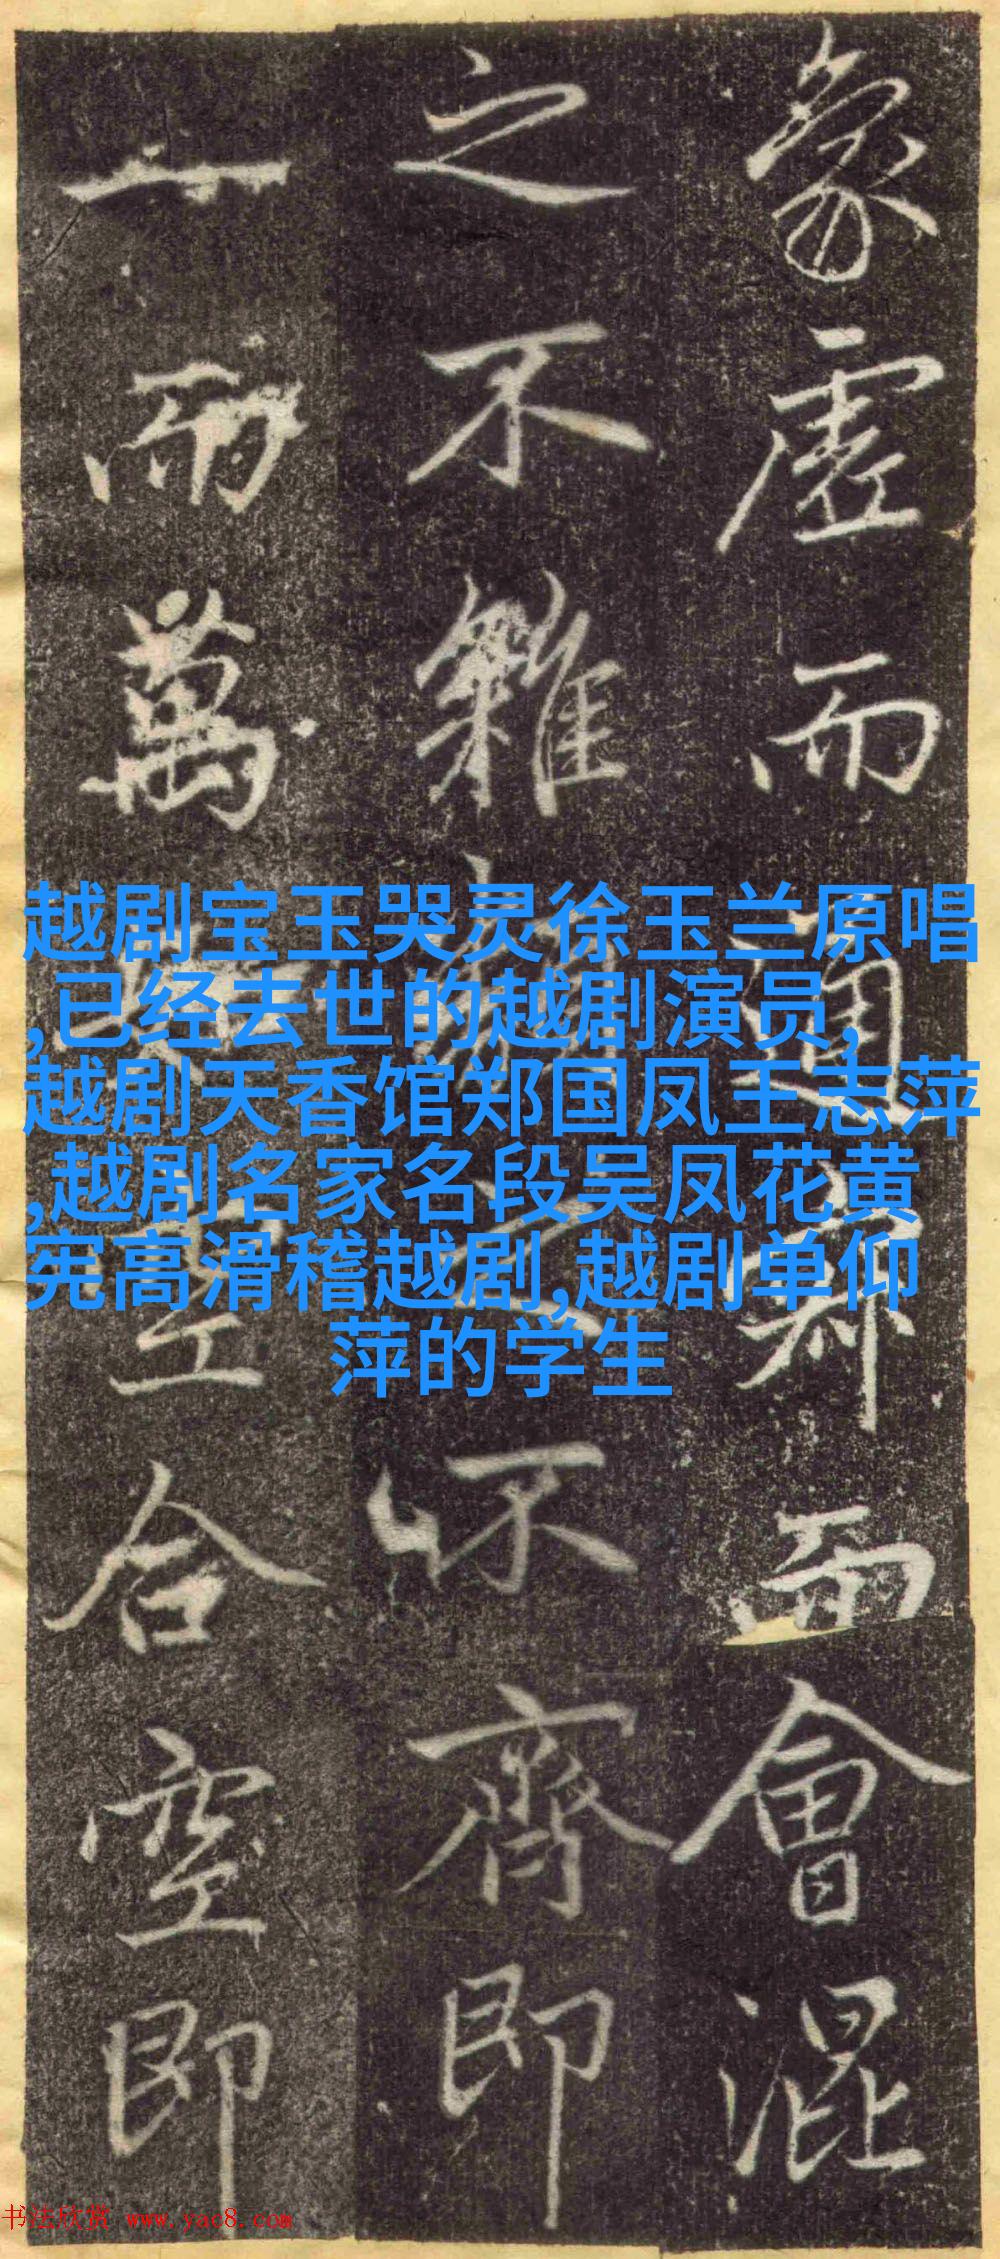 象虛而通而會混
之不雜之不齊即
一而萬合空即
越剧宝玉哭灵徐玉兰原唱
,已经去世的越剧演员,
越剧天香馆郑国凤王志萍
,越剧名家名段吴凤花黄
宪高滑稽越剧,越剧单仰
萍的学生
书法欣赏 www.yac8.com